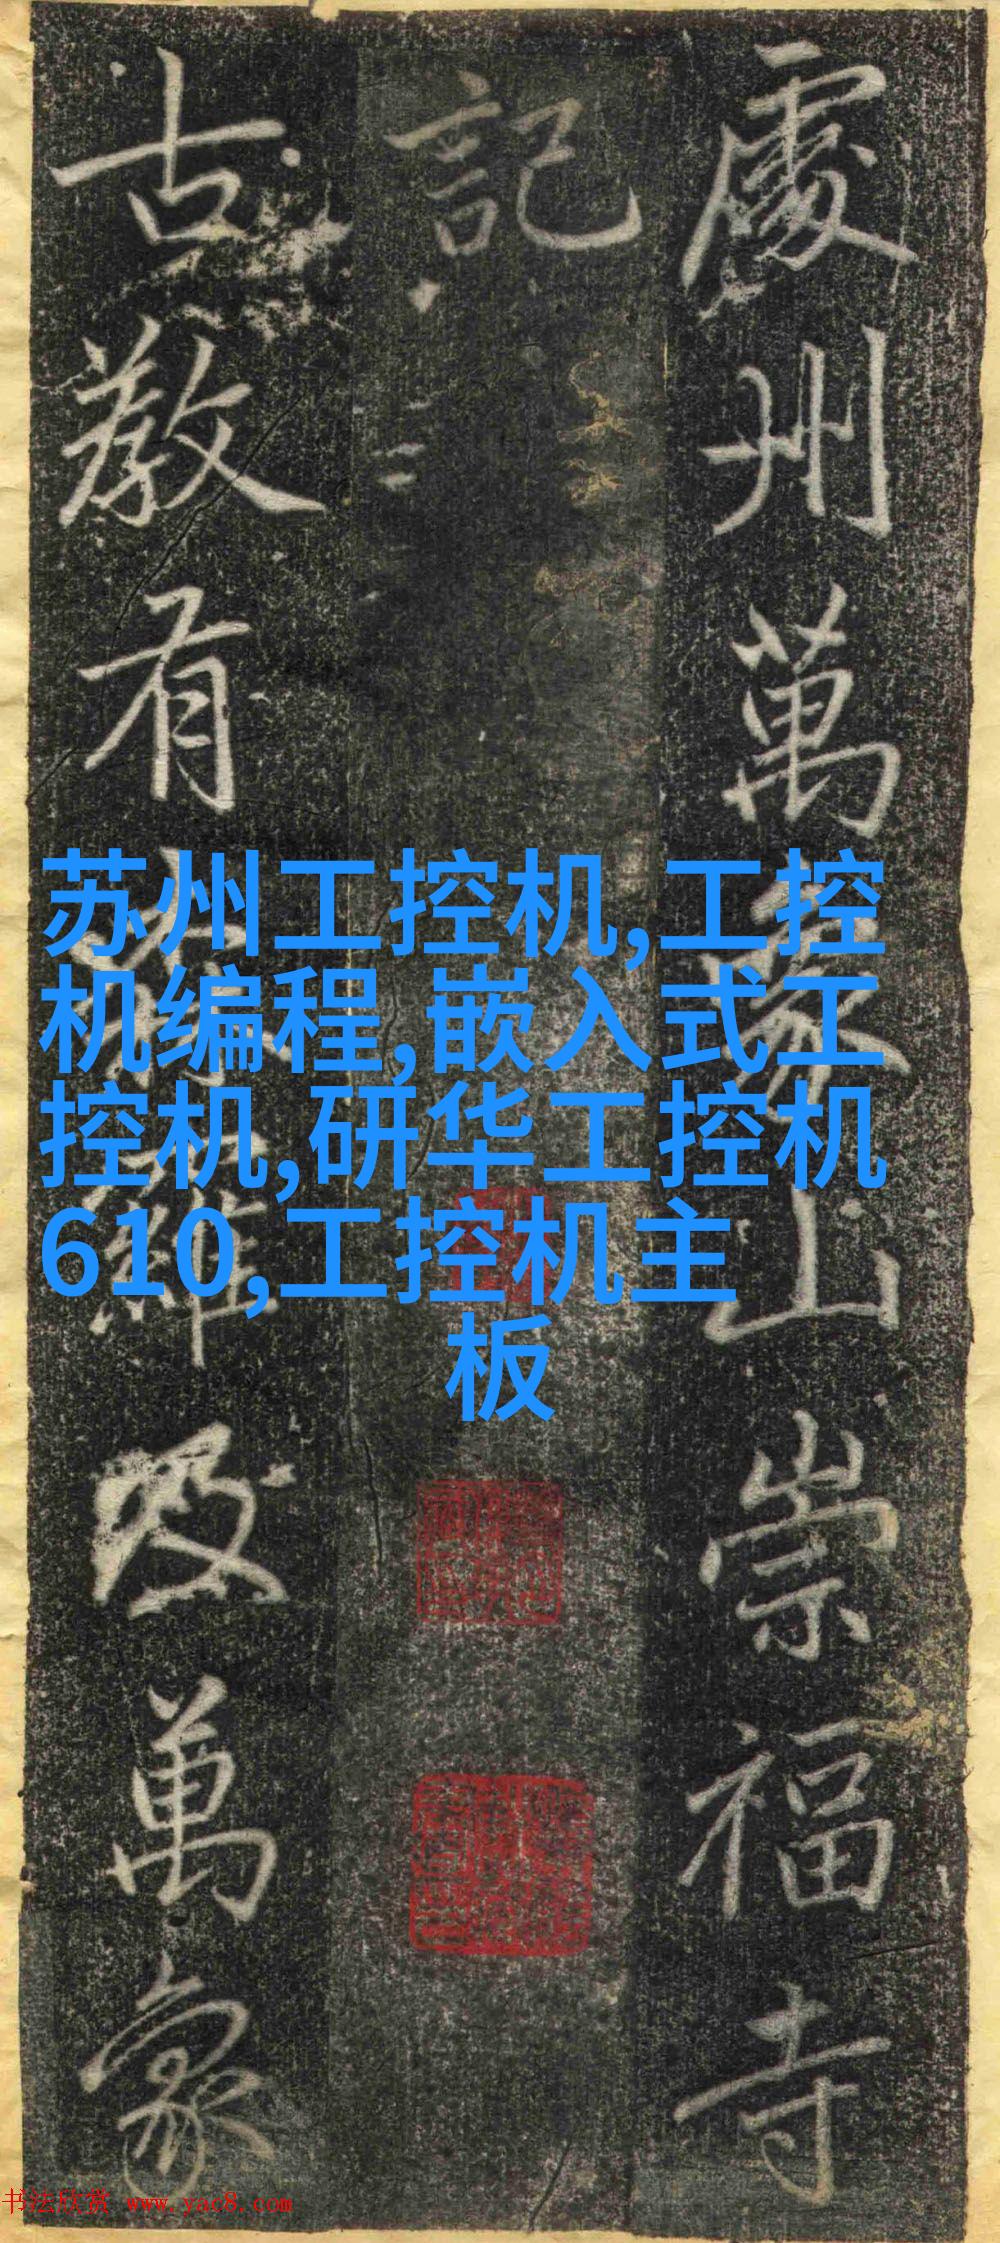 處州萬象山崇福寺
記
古教有森羅及萬象
苏州工控机,工控
机编程,嵌入式工
控机,研华工控机
610,工控机主
板
书法欣赏 www.yac8.com